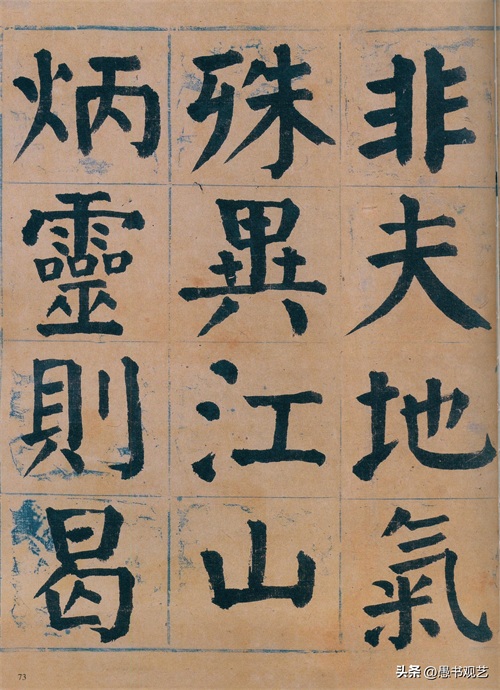 非夫地氣
殊異江山
炳靈則曷
73
头条 @愚书观艺